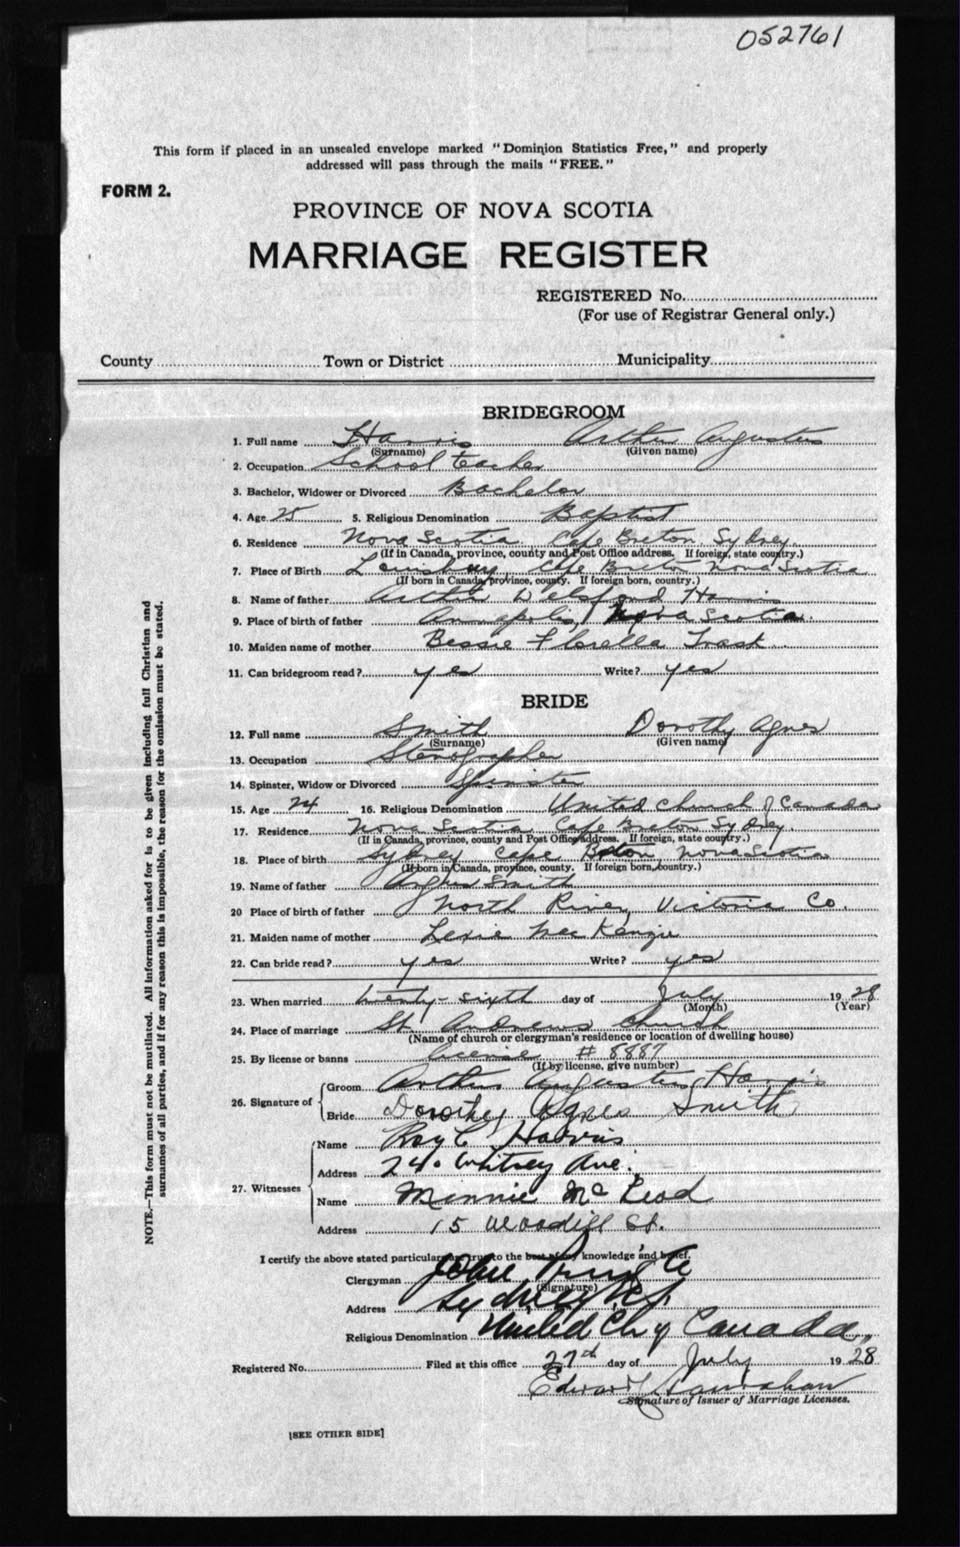 052761
This form if placed in an unsealed envelope marked "Dominion Statistics Free," and properly
addressed will pass through the mails "FREE."
FORM 2.
PROVINCE OF NOVA SCOTIA
MARRIAGE REGISTER
REGISTERED No.
(For use of Registrar General only.)
County Town or District Municipality
BRIDEGROOM
1. Full name Harris Arthur Augustus
(Surname) (Given name)
2. Occupation School teacher
3. Bachelor, Widower or Divorced Bachelor
4. Age 25 5. Religious Denomination Baptist
6. Residence Nova Scotia Cape Breton Sydney
(If in Canada, province, county and Post Office address. If foreign, state country.)
7. Place of Birth Louisburg Cape Breton Nova Scotia
(If born in Canada, province, county. If foreign born, country.)
8. Name of father Arthur Welsford Harris
9. Place of birth of father Annapolis, Nova Scotia.
10. Maiden name of mother Bessie Florella Trask
11. Can bridegroom read? yes Write? yes
BRIDE
12. Full name Smith Dorothy Agnes
(Surname) (Given name)
13. Occupation Stenographer
14. Spinster, Widow or Divorced Spinster
15. Age 24 16. Religious Denomination United Church of Canada
17. Residence Nova Scotia Cape Breton Sydney.
(If in Canada, province, county and Post Office address. If foreign, state country.)
18. Place of birth Sydney Cape Breton, Nova Scotia
(If born in Canada, province, county. If foreign born, country.)
19. Name of father Angus Smith
20 Place of birth of father North River, Victoria Co.
21. Maiden name of mother Lexie MacKenzie
22. Can bride read? yes Write? yes
23. When married twenty-sixth day of July 1928
(Month) (Year)
24. Place of marriage St. Andrews Church
(Name of church or clergyman's residence or location of dwelling house)
25. By license or banns license # 8887
(If by license, give number)
26. Signature of Groom Arthur Augustus Harris
Bride Dorothy Agnes Smith
27. Witnesses Name Roy C Harris
Address 240 Whitney Ave.
Name Minnie McLeod
Address 15 Woodill St.
I certify the above stated particulars are true to the best of my knowledge and belief.
Clergyman John
(Signature)
Address Sydney N.S.
Religious Denomination United Ch of Canada.
Registered No. Filed at this office 27th day of July 1928
Edward Hanrahan
Signature of Issuer of Marriage Licenses.
[SEE OTHER SIDE]
NOTE.—This form must not be mutilated. All information asked for is to be given including full Christian and
surnames of all parties, and if for any reason this is impossible, the reason for the omission must be stated.